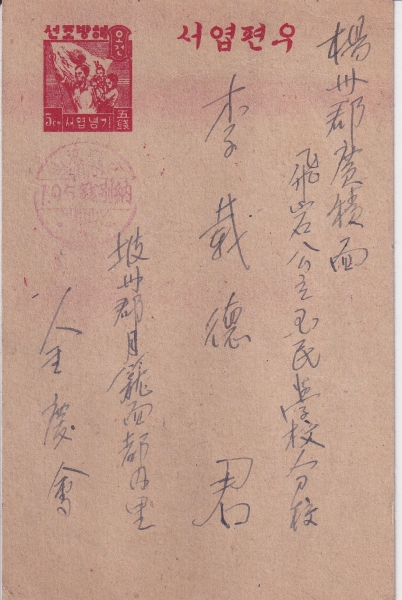 우편엽서
해방조선
오전
5cn
기념엽서
五錢
楊州郡廣積面
飛岩公立国民學校分校
李載德 君
坡州郡月籠面都内里
金慶會